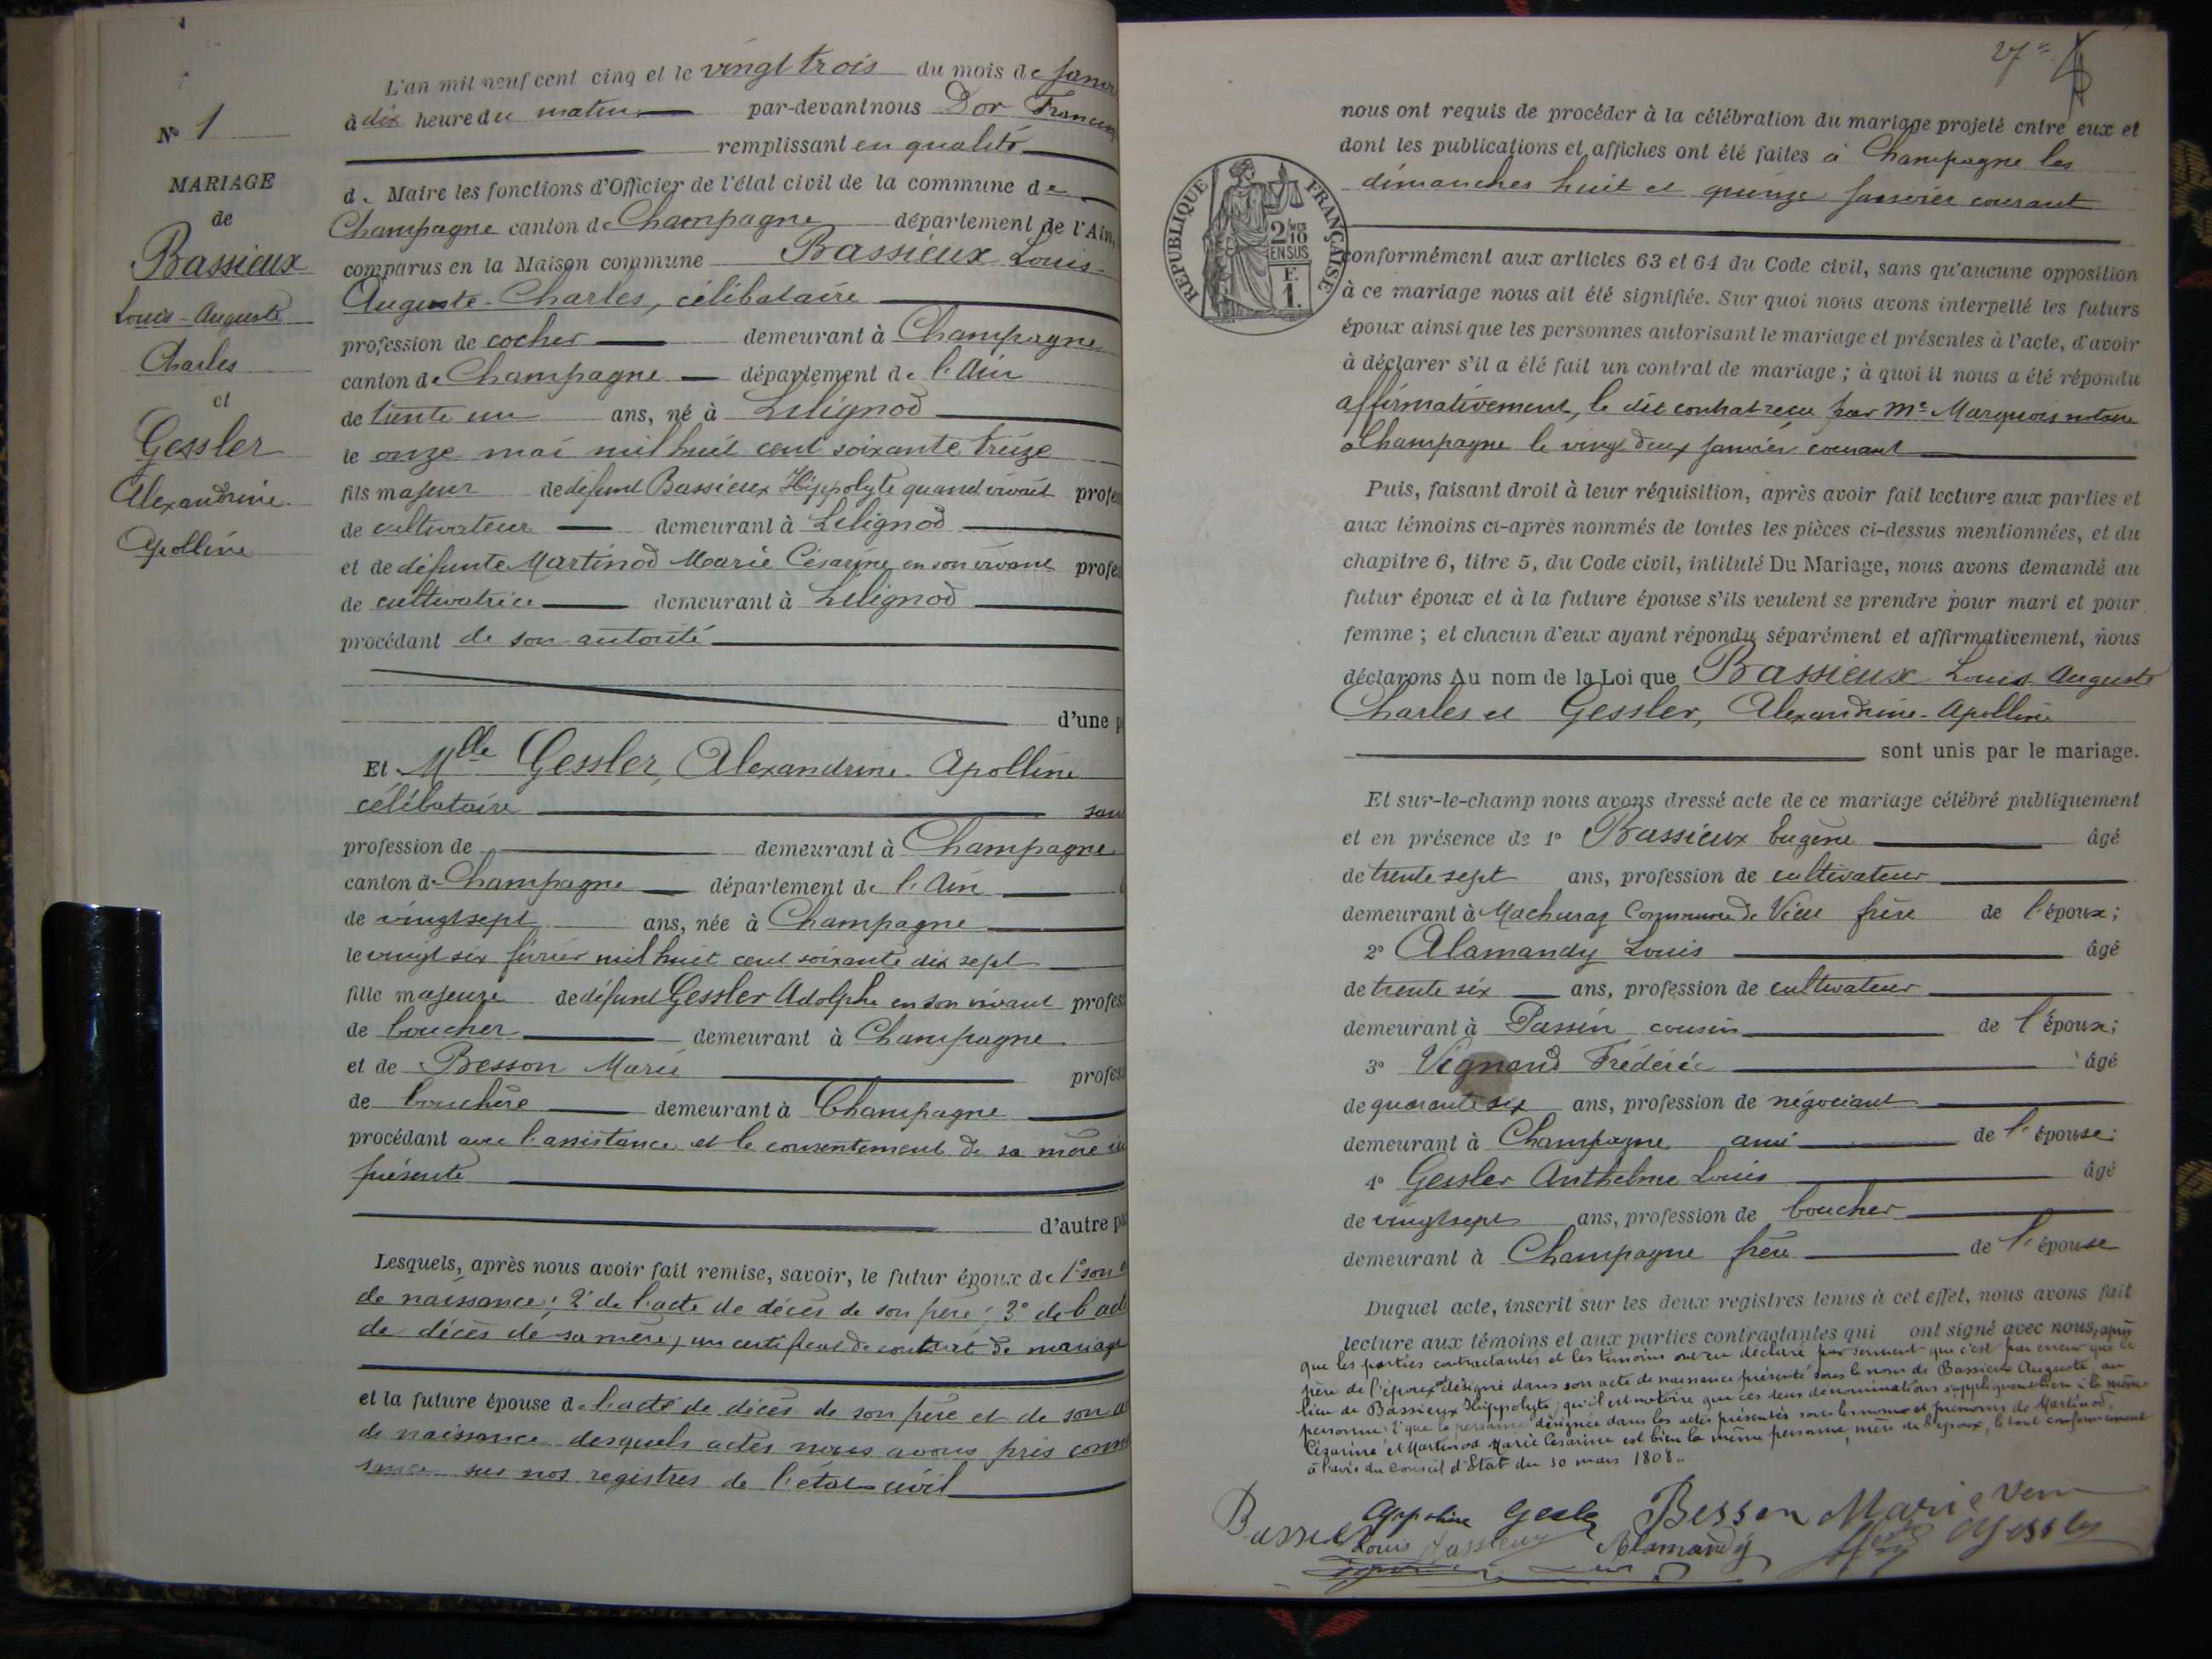 N° 1
MARIAGE
de
Bassieux
Louis-Auguste
Charles
et
Gessler
Alexandrine
Apolline
L'an mil neuf cent cinq et le vingt trois du mois de Janv
à dix heure du matin par-devant nous Dor
remplissant en qualité
de Maire les fonctions d'Officier de l'état civil de la commune de
Champagne canton de Champagne département de l'Ain,
comparus en la Maison commune Bassieux Louis-
Auguste-Charles, célibataire
profession de cocher demeurant à Champagne
canton de Champagne département de l'Ain
de trente un ans, né à Lilignod
le onze mai mil huit cent soixante treize
fils majeur de défunt Bassieux Hippolyte quand vivait profes
de cultivateur demeurant à Lilignod
et de défunte Martinod Marie Césarine en son vivant profes
de cultivatrice demeurant à Lilignod
procédant de son autorité
d'une p
Et Mlle Gessler, Alexandrine-Apolline
célibataire san
profession de demeurant à Champagne
canton de Champagne département de l'Ain
de vingt sept ans, née à Champagne
le vingt six février mil huit cent soixante dix sept
fille majeure de défunt Gessler Adolphe en son vivant profess
de boucher demeurant à Champagne
et de Besson Marie profess
de bouchère demeurant à Champagne
procédant avec l'assistance et le consentement de sa mère ici
présente
d'autre pa
Lesquels, après nous avoir fait remise, savoir, le futur époux de 1° son
de naissance; 2° de l'acte de décès de son père; 3° de l'act
de décès de sa mère, un certificat de contrat de mariage
et la future épouse de l'acte de décès de son père et de son a
de naissance desquels actes nous avons pris conn
sance sur nos registres de l'état-civil
27
RÉPUBLIQUE FRANÇAISE
2/10
EN SUS
F.
1.
nous ont requis de procéder à la célébration du mariage projeté entre eux et
dont les publications et affiches ont été faites à Champagne les
dimanches huit et quinze Janvier courant
conformément aux articles 63 et 64 du Code civil, sans qu'aucune opposition
à ce mariage nous ait été signifiée. Sur quoi nous avons interpellé les futurs
époux ainsi que les personnes autorisant le mariage et présentes à l'acte, d'avoir
à déclarer s'il a été fait un contrat de mariage; à quoi il nous a été répondu
affirmativement, le dit contrat reçu par Me Marquois notaire
à Champagne le vingt deux Janvier courant
Puis, faisant droit à leur réquisition, après avoir fait lecture aux parties et
aux témoins ci-après nommés de toutes les pièces ci-dessus mentionnées, et du
chapitre 6, titre 5, du Code civil, intitulé Du Mariage, nous avons demandé au
futur époux et à la future épouse s'ils veulent se prendre pour mari et pour
femme; et chacun d'eux ayant répondu séparément et affirmativement, nous
déclarons Au nom de la Loi que Bassieux Louis-Auguste
Charles et Gessler, Alexandrine-Apolline
sont unis par le mariage.
Et sur-le-champ nous avons dressé acte de ce mariage célébré publiquement
et en présence de 1° Bassieux Eugène âgé
de trente sept ans, profession de cultivateur
demeurant à Machuraz Commune de Vieu frère de l'époux;
2° Alamandy Louis âgé
de trente six ans, profession de cultivateur
demeurant à Passin cousin de l'époux;
3° Vignand Frédéric âgé
de quarante six ans, profession de négociant
demeurant à Champagne ami de l'épouse;
4° Gessler Anthelme Louis âgé
de vingt sept ans, profession de boucher
demeurant à Champagne frère de l'épouse
Duquel acte, inscrit sur les deux registres tenus à cet effet, nous avons fait
lecture aux témoins et aux parties contractantes qui ont signé avec nous, après
que les parties contractantes et les témoins ont eu déclaré par serment que c'est par erreur que le
père de l'époux est désigné dans son acte de naissance présenté sous le nom de Bassieux Auguste au
lieu de Bassieux Hippolyte, qu'il est notoire que ces deux dénominations s'appliquent bien à la même
personne; 2° que la personne désignée dans les actes présentés sous les noms et prénoms de Martinod,
Césarine et Martinod Marie Césarine est bien la même personne, mère de l'époux, le tout conformément
à l'avis du Conseil d'Etat du 30 mars 1808.
Appoline Gesler Besson Marie
Louis Bassieux Alamandy Gessler